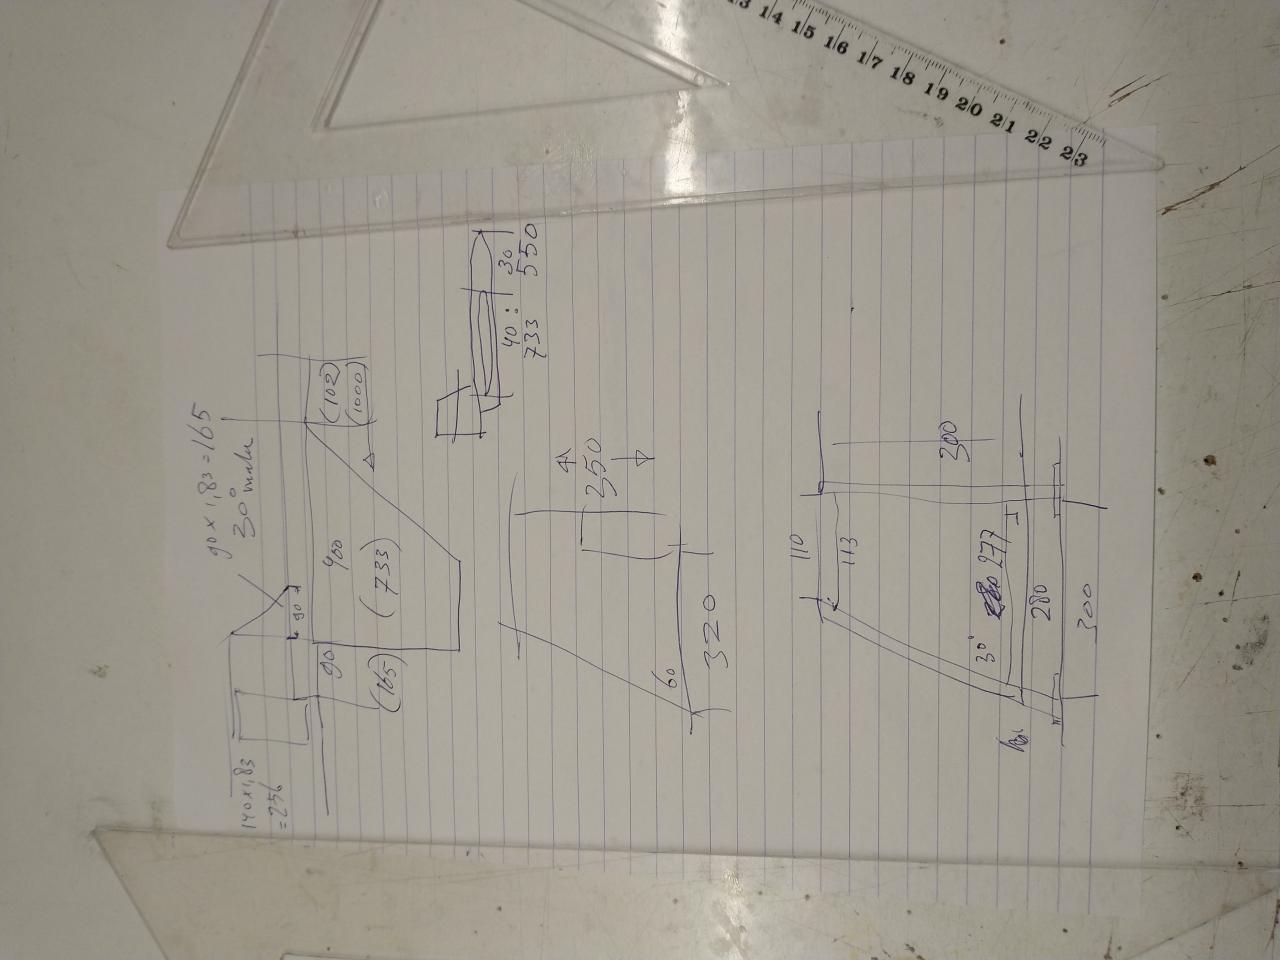 13 14 15 16 17 18 19 20 21 22 23
90 x 1,83 = 165
140 x 1,83
= 256
90
90
400
(102)
(165)
(733)
(1000)
40 : 30
733 550
350
60
320
110
113
300
30°
277
280
300